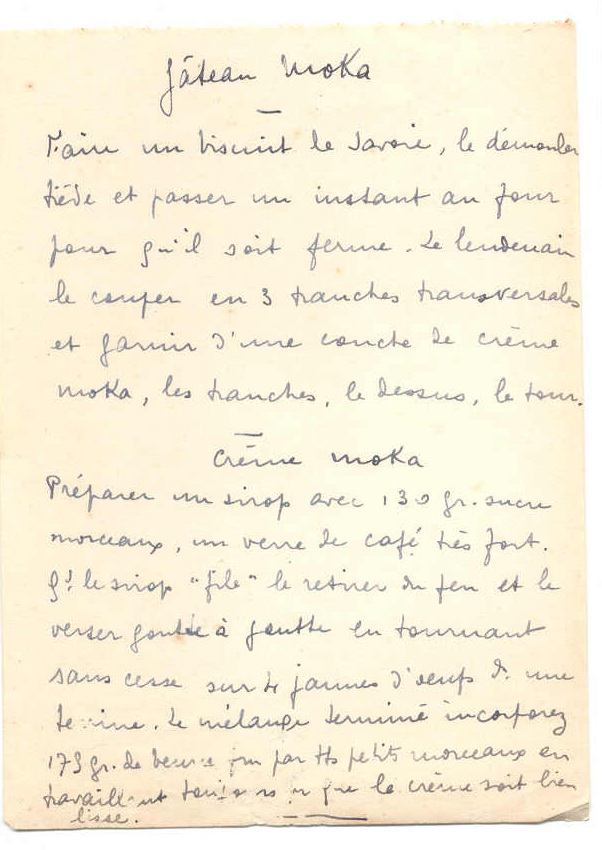 Gâteau Moka
Faire un biscuit de Savoie, le démouler
tiède et passer un instant au four
pour qu'il soit ferme. Le lendemain
le couper en 3 tranches transversales
et garnir d'une couche de crème
moka, les tranches, le dessus, le tour.
Crème moka
Préparer un sirop avec 130 gr. sucre
morceaux, un verre de café très fort.
Qd le sirop "file" le retirer du feu et le
verser goutte à goutte en tournant
sans cesse sur 4 jaunes d'oeufs ds une
terrine. Le mélange terminé incorporez
175 gr. de beurre par tts petits morceaux en
travaillant toujours que la crème soit bien
lisse.